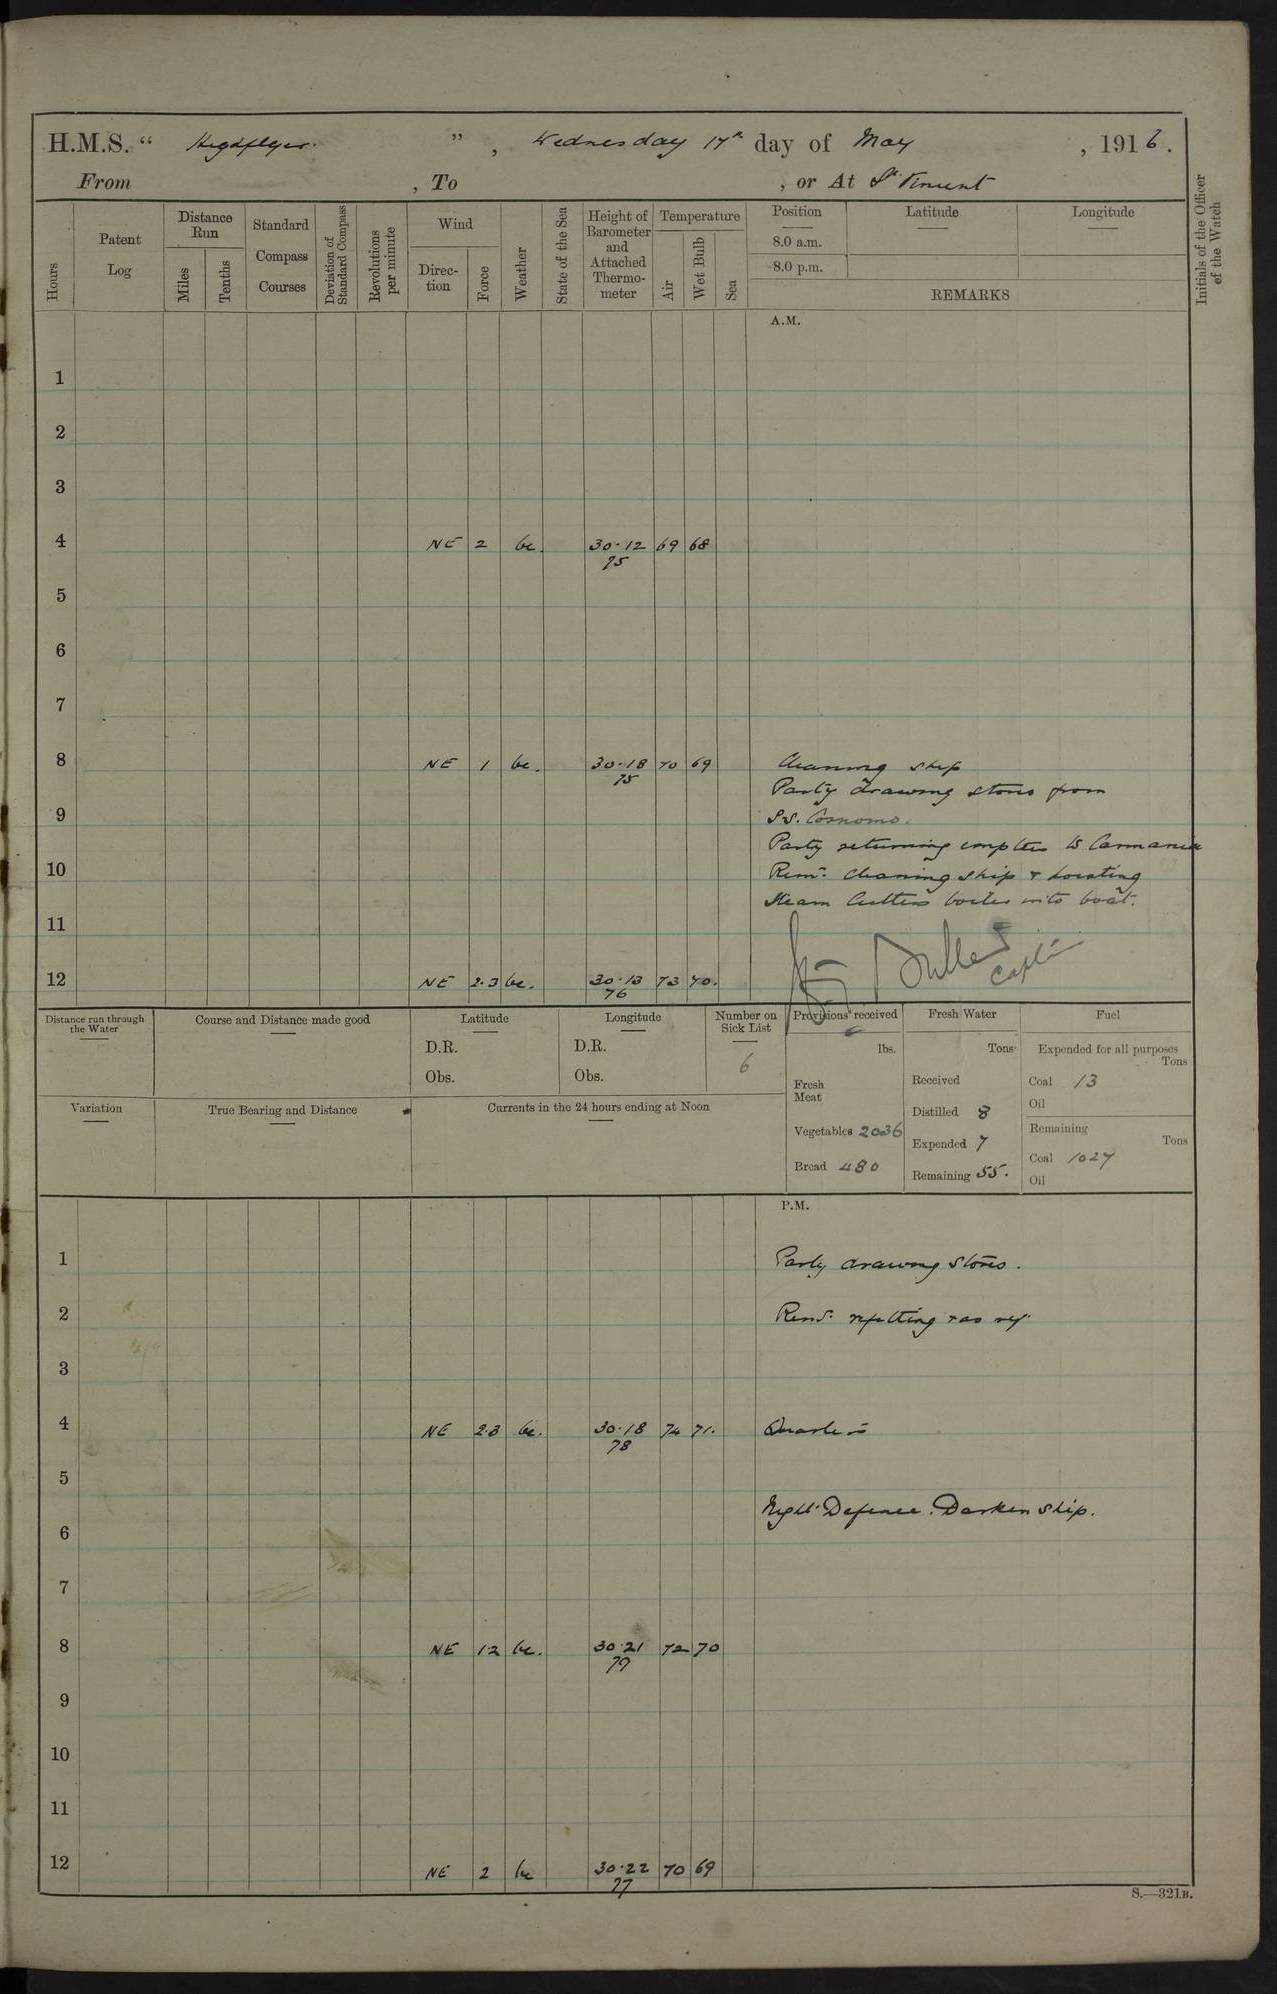 H.M.S. " Highflyer. ", Wednesday 17th day of May, 1916.
From , To , or At St Vincent
Hours
Patent Log
Distance Run
Miles
Tenths
Standard Compass Courses
Deviation of Standard Compass
Revolutions per minute
Wind
Direction
Force
Weather
State of the Sea
Height of Barometer and Attached Thermometer
Temperature
Air
Wet Bulb
Sea
Position
Latitude
Longitude
8.0 a.m.
8.0 p.m.
REMARKS
Initials of the Officer of the Watch
A.M.
1
2
3
4 NE 2 bc. 30.12 69 68
75
5
6
7
8 NE 1 bc. 30.18 70 69 Cleaning ship
75 Party drawing stores from
9 S.S.
Party returning empties to Carmania
10 Remr. cleaning ship & hoisting
Steam Cutters boiler into boat.
11
12 NE 2.3 bc. 30.13 73 70.
76
Captn
Distance run through the Water
Course and Distance made good
Latitude
D.R.
Obs.
Longitude
D.R.
Obs.
Number on Sick List
6
Provisions received
lbs.
Fresh Meat
Vegetables 2036
Bread 480
Fresh Water
Tons
Received
Distilled 8
Expended 7
Remaining 55.
Fuel
Expended for all purposes
Tons
Coal 13
Oil
Remaining
Tons
Coal 1027
Oil
Variation
True Bearing and Distance
Currents in the 24 hours ending at Noon
P.M.
1 Party drawing stores.
2 Remr. refitting & as req.
3
4 NE 2.3 bc. 30.18 74 71. Quarters
78
5
Night Defence. Darken ship.
6
7
8 NE 12 bc. 30.21 72 70
79
9
10
11
12 NE 2 bc 30.22 70 69
77
S.—321B.